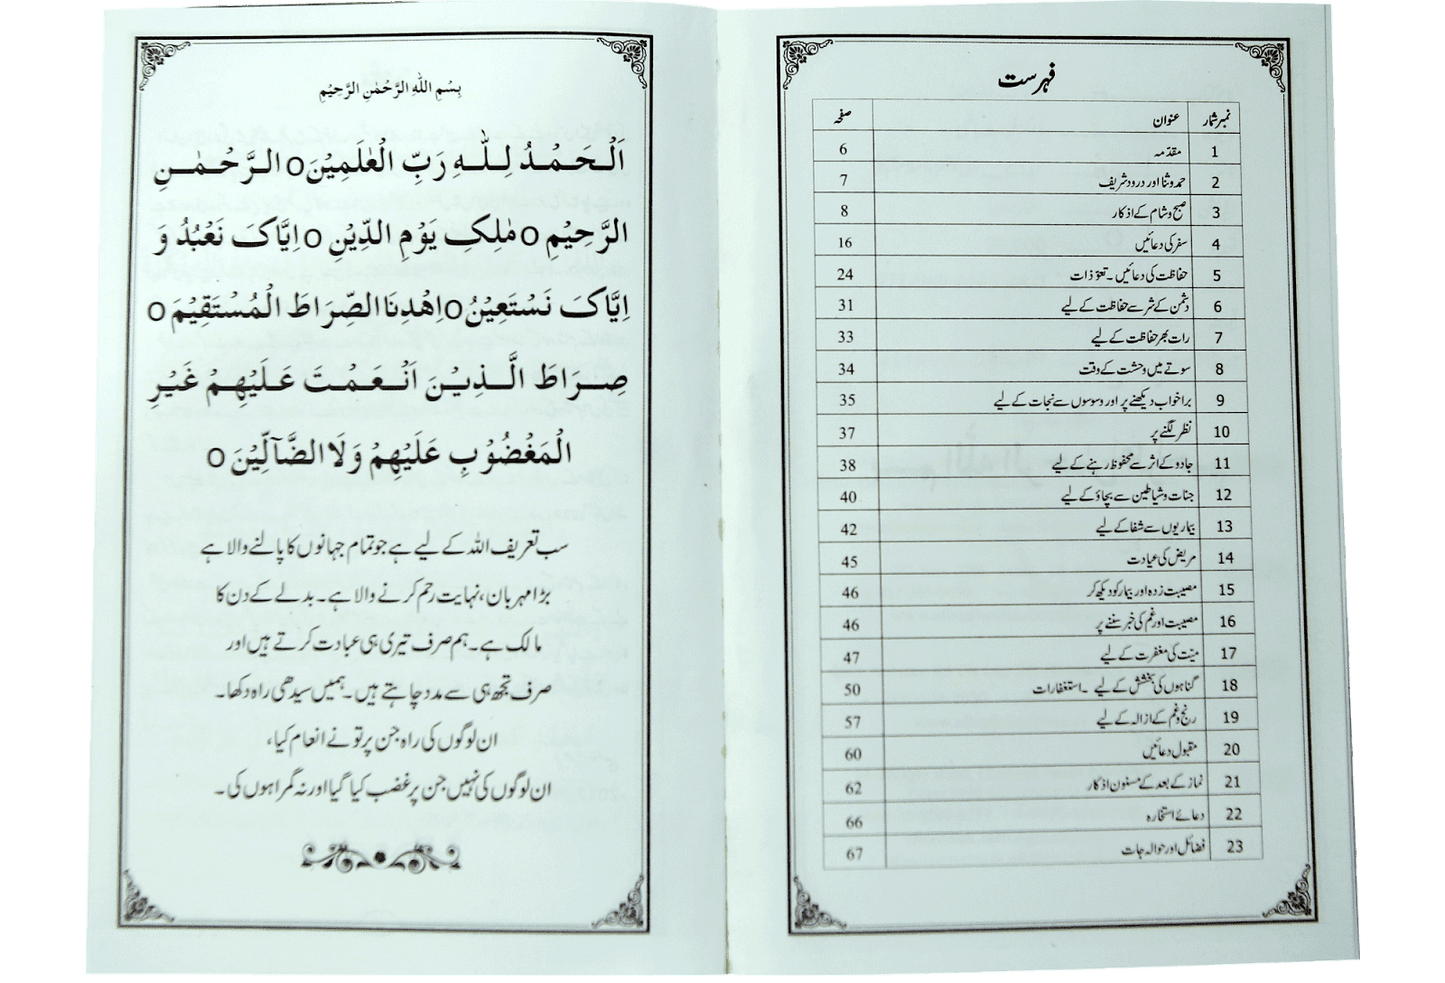 فہرست
نمبرشمار عنوان صفحہ
1 مقدّمہ 6
2 حمد و ثنا اور درود شریف 7
3 صبح و شام کے اذکار 8
4 سفر کی دعائیں 16
5 حفاظت کی دعائیں ۔ تعوّذات 24
6 دشمن کے شر سے حفاظت کے لیے 31
7 رات بھر حفاظت کے لیے 33
8 سوتے میں وحشت کے وقت 34
9 برا خواب دیکھنے پر اور وسوسوں سے نجات کے لیے 35
10 نظر لگنے پر 37
11 جادو کے اثر سے محفوظ رہنے کے لیے 38
12 جنات و شیاطین سے بچاؤ کے لیے 40
13 بیماریوں سے شفا کے لیے 42
14 مریض کی عیادت 45
15 مصیبت زدہ اور بیمار کو دیکھ کر 46
16 مصیبت اور غم کی خبر سننے پر 46
17 میّت کی مغفرت کے لیے 47
18 گناہوں کی بخشش کے لیے ۔ استغفارات 50
19 رنج و غم کے ازالہ کے لیے 57
20 مقبول دعائیں 60
21 نماز کے بعد کے مسنون اذکار 62
22 دعائے استخارہ 66
23 فضائل اور حوالہ جات 67
بِسْمِ اللهِ الرَّحْمٰنِ الرَّحِيْمِ
اَلْحَمْدُ لِلّٰهِ رَبِّ الْعٰلَمِيْنَ o الرَّحْمٰنِ
الرَّحِيْمِ o مٰلِكِ يَوْمِ الدِّيْنِ o اِيَّاكَ نَعْبُدُ وَ
اِيَّاكَ نَسْتَعِيْنُ o اِهْدِنَا الصِّرَاطَ الْمُسْتَقِيْمَ o
صِرَاطَ الَّذِيْنَ اَنْعَمْتَ عَلَيْهِمْ غَيْرِ
الْمَغْضُوْبِ عَلَيْهِمْ وَلَا الضَّآلِّيْنَ o
سب تعریف اللہ کے لیے ہے جو تمام جہانوں کا پالنے والا ہے
بڑا مہربان، نہایت رحم کرنے والا ہے۔ بدلے کے دن کا
مالک ہے۔ ہم صرف تیری ہی عبادت کرتے ہیں اور
صرف تجھ ہی سے مدد چاہتے ہیں۔ ہمیں سیدھی راہ دکھا۔
ان لوگوں کی راہ جن پر تو نے انعام کیا،
ان لوگوں کی نہیں جن پر غضب کیا گیا اور نہ گمراہوں کی۔